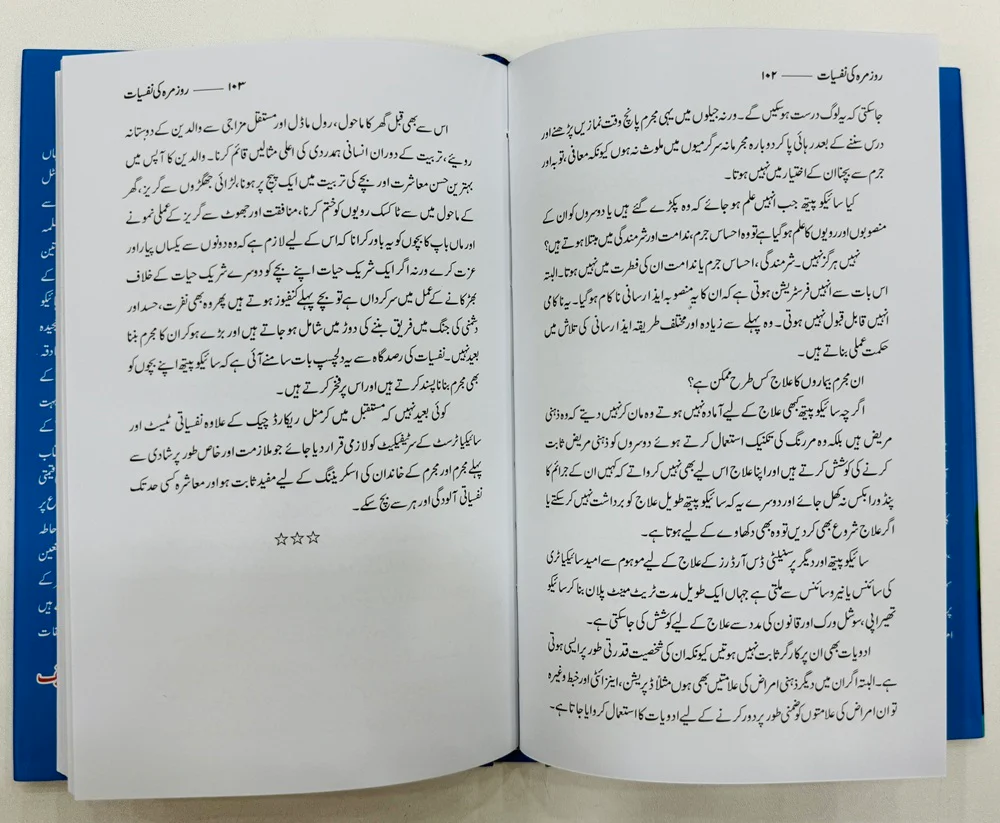 روزمرہ کی نفسیات —— ۱۰۲
جاسکتی کہ یہ لوگ درست ہوسکیں گے۔ ورنہ جیلوں میں یہی مجرم پانچ وقت نمازیں پڑھنے اور
درس سننے کے بعد رہائی پا کر دوبارہ مجرمانہ سرگرمیوں میں ملوث نہ ہوں کیونکہ معافی، توبہ اور
جرم سے بچنا ان کے اختیار میں نہیں ہوتا۔
کیا سائیکو پیتھ جب انہیں علم ہو جائے کہ وہ پکڑے گئے ہیں یا دوسروں کو ان کے
منصوبوں اور رویوں کا علم ہو گیا ہے تو وہ احساس جرم، ندامت اور شرمندگی میں مبتلا ہوتے ہیں؟
نہیں ہرگز نہیں۔ شرمندگی، احساس جرم یا ندامت ان کی فطرت میں نہیں ہوتا۔ البتہ
اس بات سے انہیں فرسٹریشن ہوتی ہے کہ ان کا یہ منصوبہ ایذا رسانی ناکام ہو گیا۔ یہ ناکامی
انہیں قابل قبول نہیں ہوتی۔ وہ پہلے سے زیادہ اور مختلف طریقہ ایذا رسانی کی تلاش میں
حکمت عملی بناتے ہیں۔
ان مجرم بیماروں کا علاج کس طرح ممکن ہے؟
اگرچہ سائیکو پیتھ کبھی علاج کے لیے آمادہ نہیں ہوتے وہ مان کر نہیں دیتے کہ وہ ذہنی
مریض ہیں بلکہ وہ مررنگ کی تکنیک استعمال کرتے ہوئے دوسروں کو ذہنی مریض ثابت
کرنے کی کوشش کرتے ہیں اور اپنا علاج اس لیے بھی نہیں کرواتے کہ کہیں ان کے جرائم کا
پنڈورا بکس نہ کھل جائے اور دوسرے یہ کہ سائیکو پیتھ طویل علاج کو برداشت نہیں کر سکتے یا
اگر علاج شروع بھی کر دیں تو وہ بھی دکھاوے کے لیے ہوتا ہے۔
سائیکو پیتھ اور دیگر پرسنیلٹی ڈس آرڈرز کے علاج کے لیے موہوم سے امید سائیکیاٹری
کی سائنس یا نیورو سائنس سے ملتی ہے جہاں ایک طویل مدت ٹریٹ مینٹ پلان بنا کر سائیکو
تھیراپی، سوشل ورک اور قانون کی مدد سے علاج کے لیے کوشش کی جاسکتی ہے۔
ادویات بھی ان پر کارگر ثابت نہیں ہوتیں کیونکہ ان کی شخصیت قدرتی طور پر ایسی ہوتی
ہے۔ البتہ اگر ان میں دیگر ذہنی امراض کی علامتیں بھی ہوں مثلاً ڈپریشن، اینزائٹی اور خبط وغیرہ
تو ان امراض کی علامتوں کو ضمنی طور پر دور کرنے کے لیے ادویات کا استعمال کروایا جاتا ہے۔
۱۰۳ —— روزمرہ کی نفسیات
اس سے بھی قبل گھر کا ماحول، رول ماڈل اور مستقل مزاجی سے والدین کے دوستانہ
رویئے، تربیت کے دوران انسانی ہمدردی کی اعلی مثالیں قائم کرنا۔ والدین کا آپس میں
بہترین حسن معاشرت اور بچے کی تربیت میں ایک پیج پر ہونا، لڑائی جھگڑوں سے گریز، گھر
کے ماحول میں سے ٹاکسک رویوں کو ختم کرنا، منافقت اور جھوٹ سے گریز کے عملی نمونے
اور ماں باپ کا بچوں کو یہ باور کرانا کہ اس کے لیے لازم ہے کہ وہ دونوں سے یکساں پیار اور
عزت کرے ورنہ اگر ایک شریک حیات اپنے بچے کو دوسرے شریک حیات کے خلاف
بھڑکانے کے عمل میں سرگرداں ہے تو بچے پہلے کنفیوز ہوتے ہیں پھر وہ بھی نفرت، حسد اور
دشمنی کی جنگ میں فریق بننے کی دوڑ میں شامل ہو جاتے ہیں اور بڑے ہو کر ان کا مجرم بننا
بعید نہیں۔ نفسیات کی رصدگاہ سے یہ دلچسپ بات سامنے آئی ہے کہ سائیکو پیتھ اپنے بچوں کو
بھی مجرم بنانا پسند کرتے ہیں اور اس پر فخر کرتے ہیں۔
کوئی بعید نہیں کہ مستقبل میں کرمنل ریکارڈ چیک کے علاوہ نفسیاتی ٹیسٹ اور
سائیکیاٹرسٹ کے سرٹیفکیٹ کو لازمی قرار دیا جائے جو ملازمت اور خاص طور پر شادی سے
پہلے مجرم اور مجرم کے خاندان کی اسکریننگ کے لیے مفید ثابت ہو اور معاشرہ کسی حد تک
نفسیاتی آلودگی اور ہرسے بچ سکے۔
☆☆☆